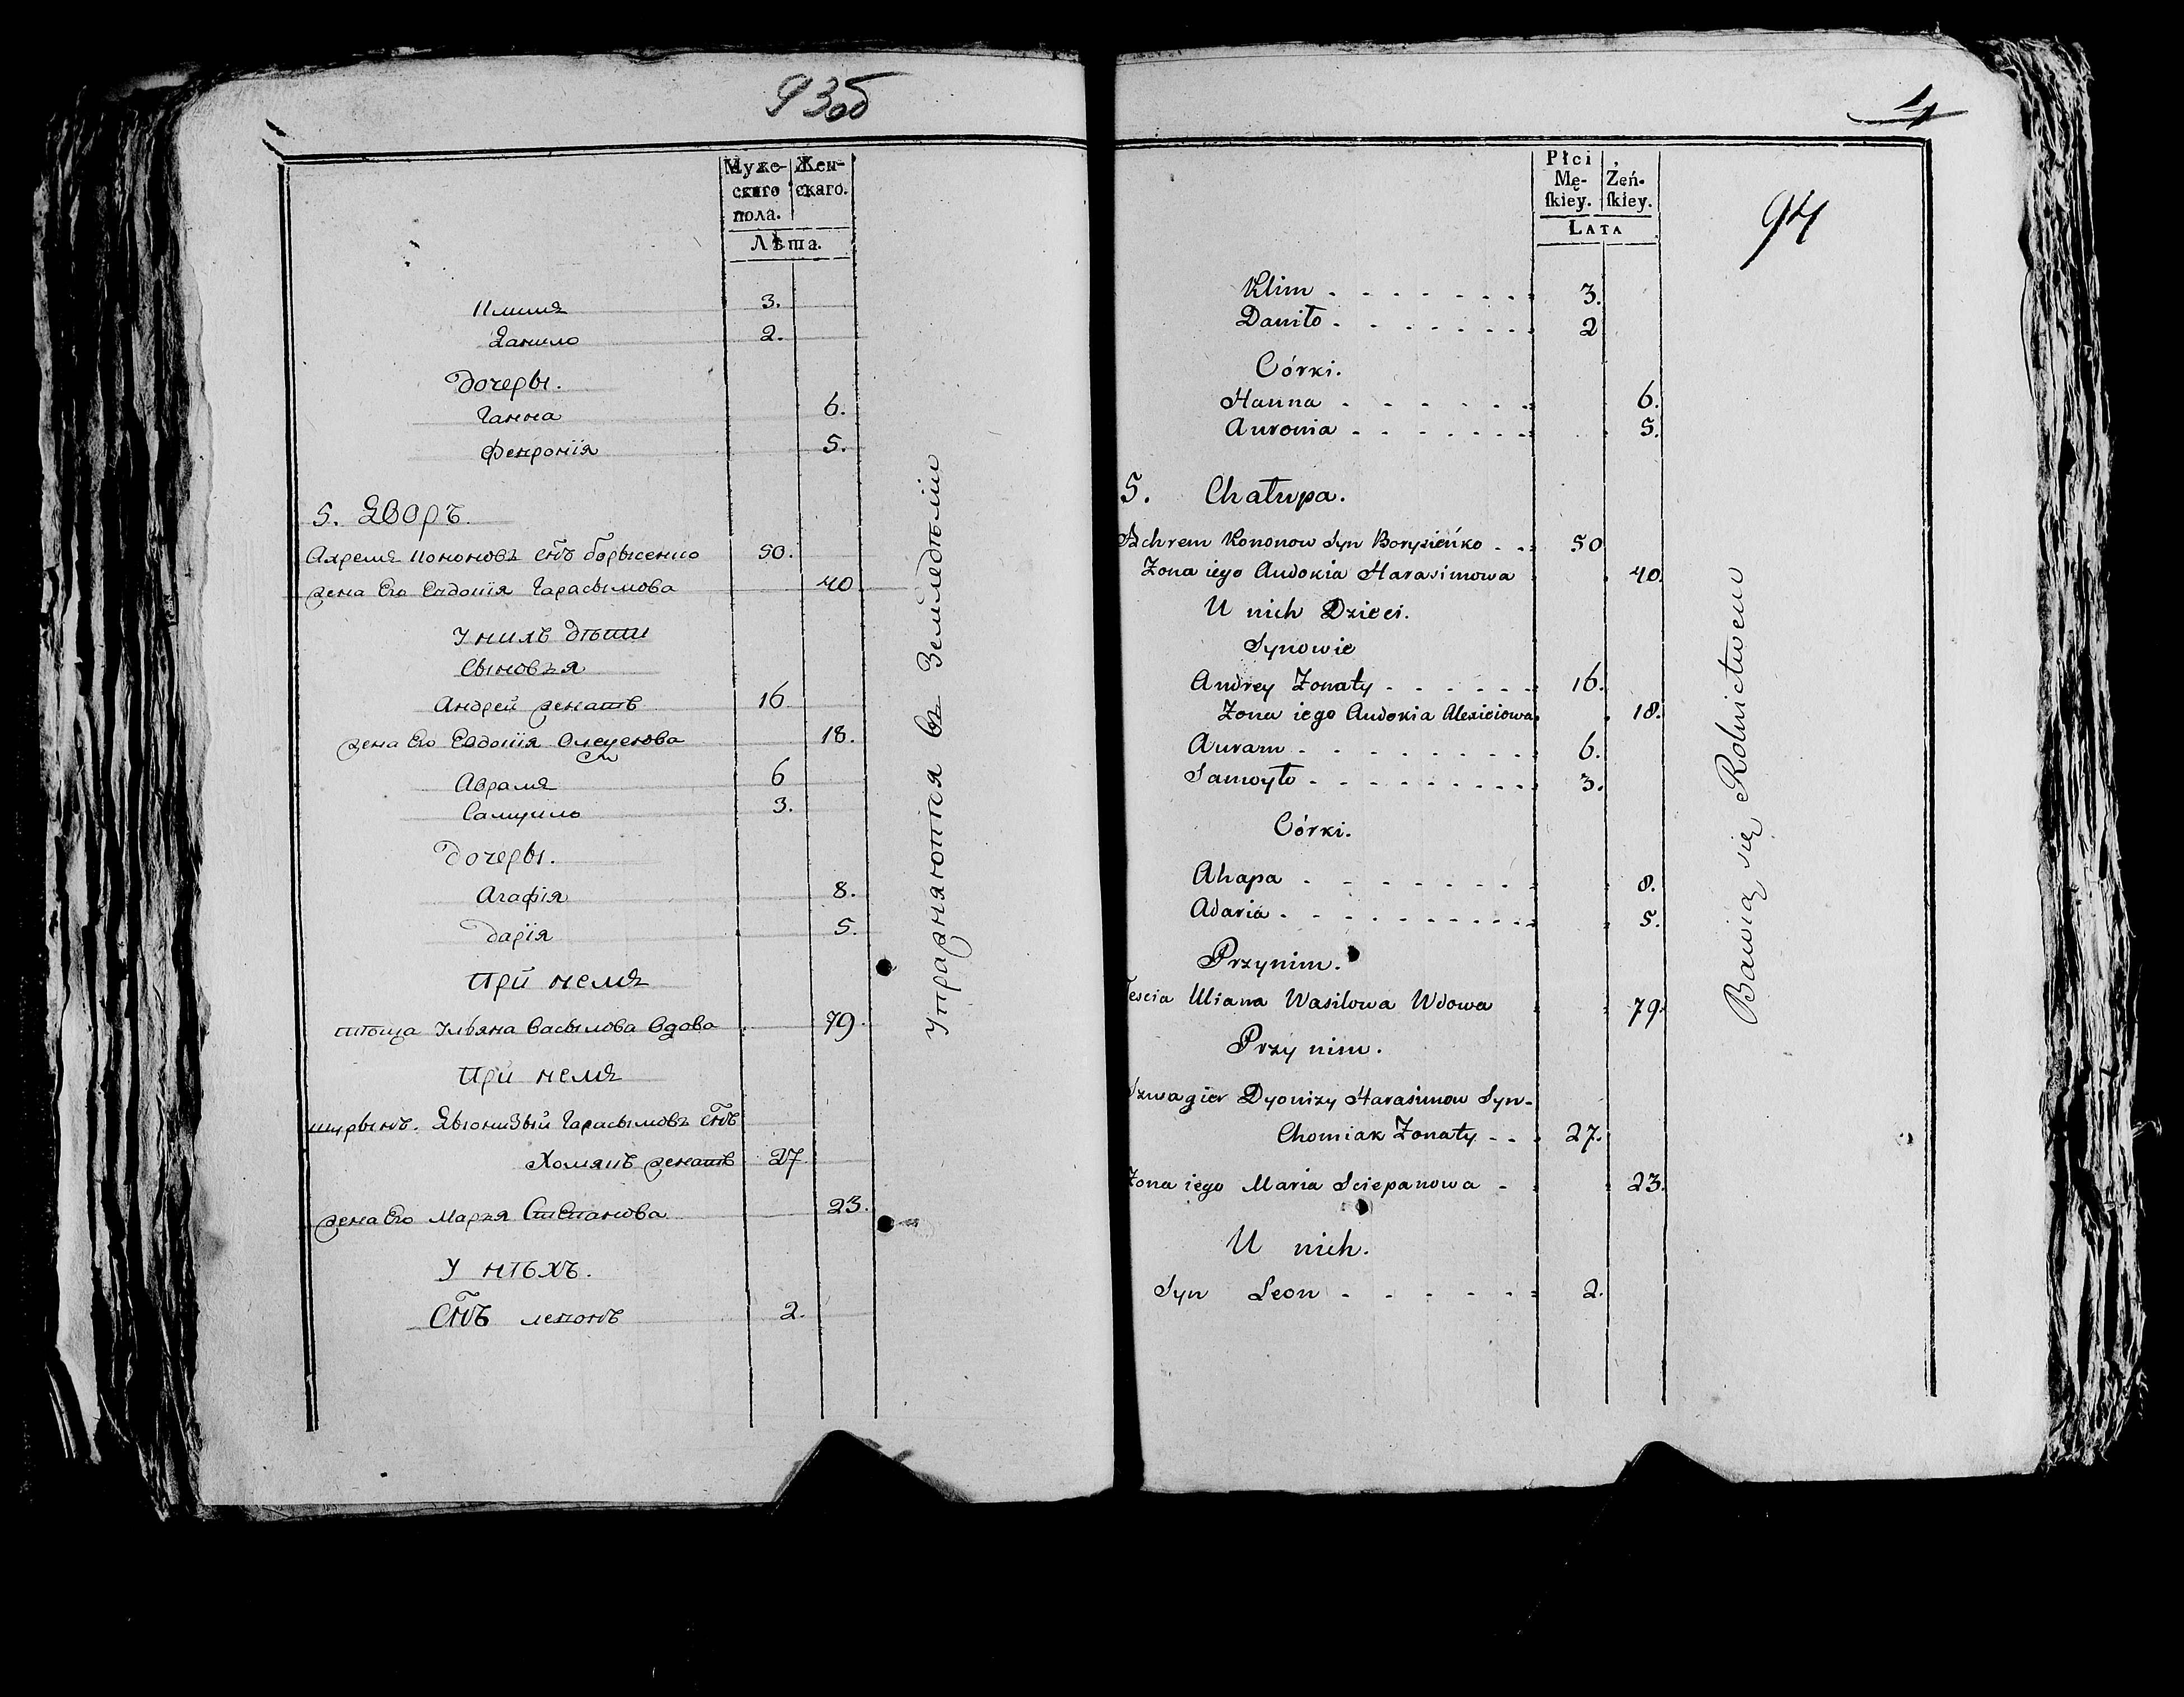 93об
Муже- Жен-
скаго скаго.
пола.
Лѣта.
Климъ 3.
Данило 2.
Дочеры.
Ганна 6.
Февронїя 5.
5. Дворъ.
Ахремъ Кононовъ Снъ Борысенко 50.
жена Его Евдокїя Гарасымова 40
У нихъ дѣти
Сыновья
Андрей женатъ 16
жена Его Евдокїя Олексеюва 18.
Аврамъ 6
Самуило 3.
Дочеры.
Агафїя 8.
Дарїя 5.
При немъ
тѣща Ульяна Васылова Вдова 79.
При немъ
шурынъ. Дыонизый Гарасымовъ Снъ
Хомякъ женатъ 27
жена Его Марья Степанова 23.
У нѣхъ.
Снъ левонъ 2.
Упражняются въ Земледѣлїи
94
Płci
Mę- Żeń-
ſkiey. ſkiey.
LATA
Klim 3.
Daniło 2
Córki.
Hanna 6.
Auronia 5.
5. Chałupa.
Achrem Kononow Syn Borysieńko 50
Żona iego Audokia Harasimowa 40
U nich Dzieci.
Synowie
Andrey Żonaty 16.
Żona iego Audokia Alexieiowa 18.
Auram 6.
Samoyło 3.
Córki.
Ahapa 8.
Adaria 5.
Przynim.
Tescia Uliana Wasilowa Wdowa 79.
Przy nim.
Szwagier Dyonizy Harasimow Syn-
Chomiak Żonaty 27.
Żona iego Maria Sciepanowa 23.
U nich.
Syn Leon 2.
Bawią się Rolnictwem